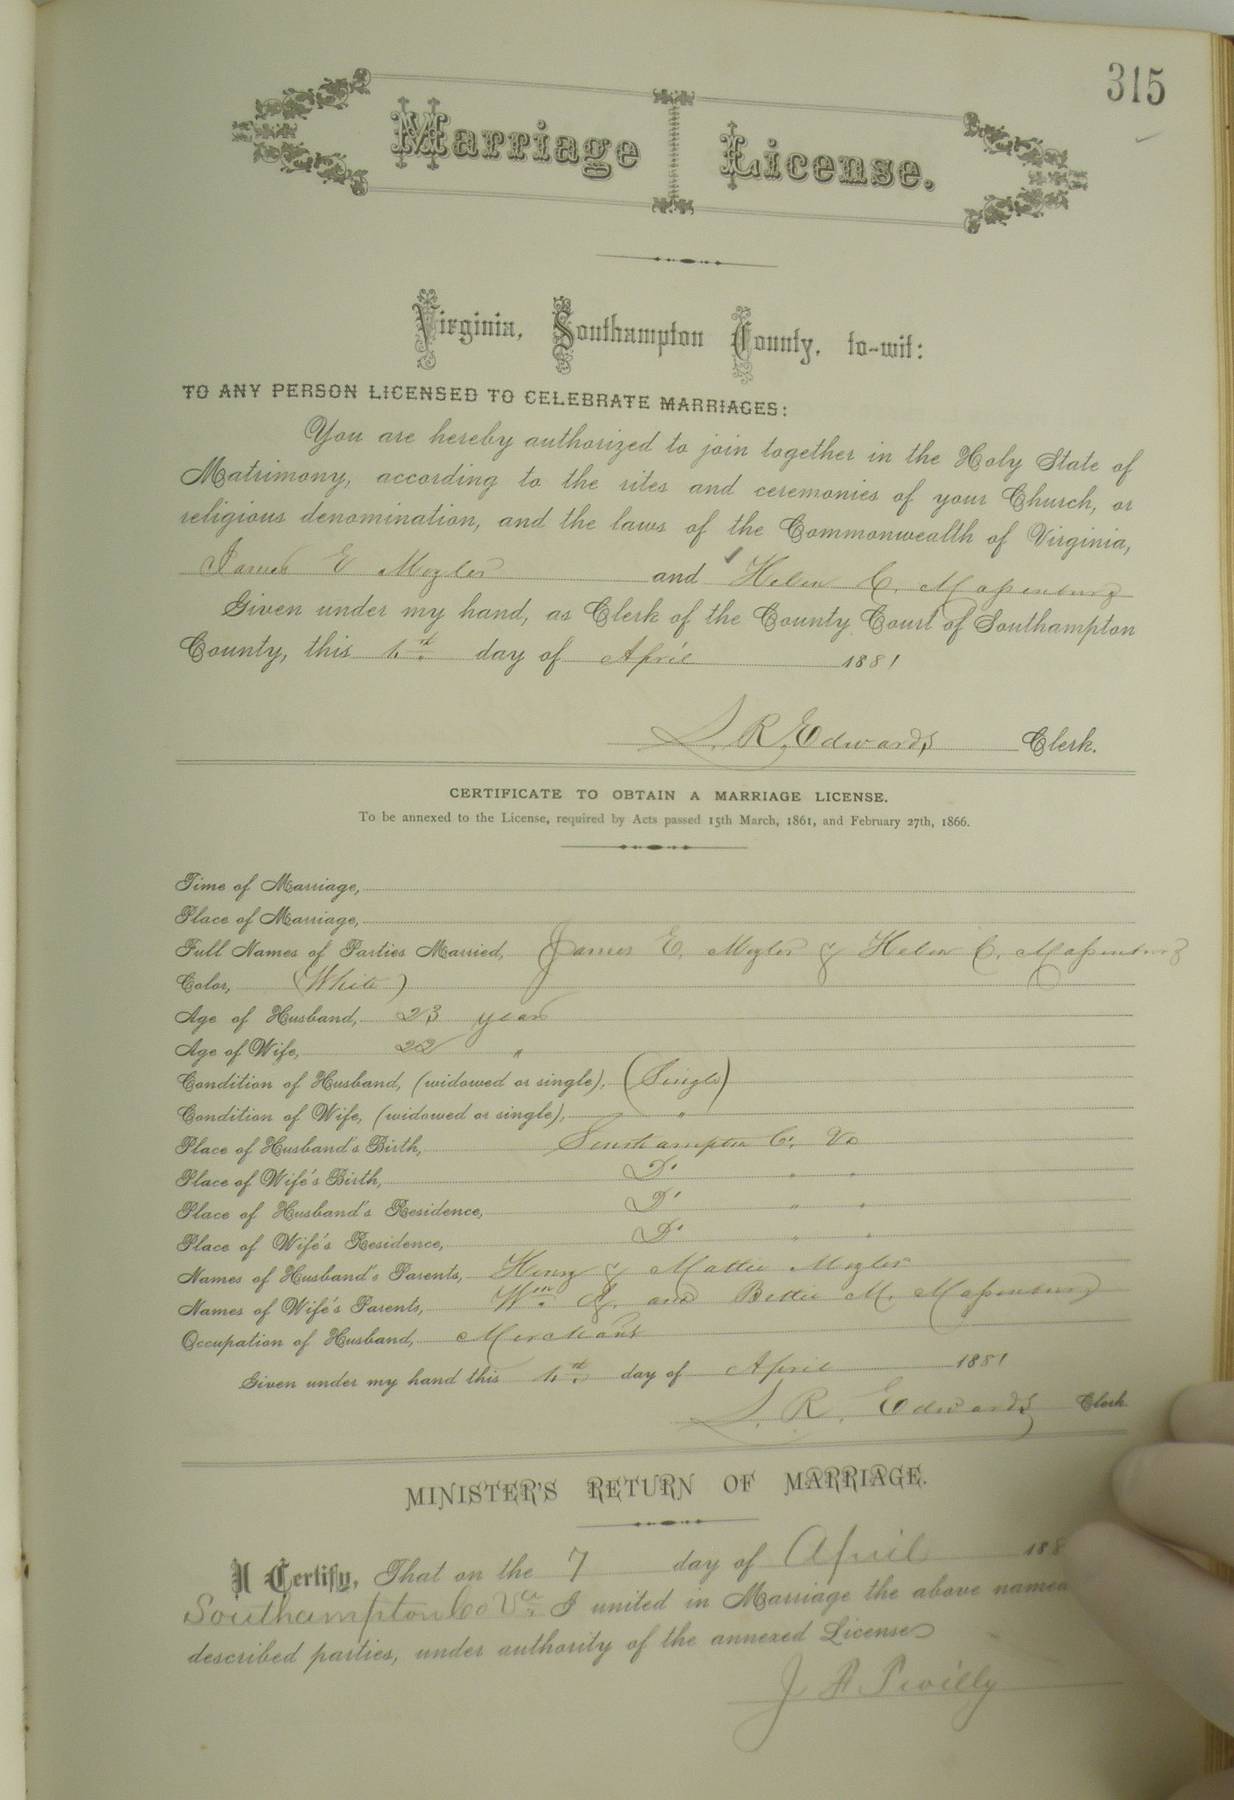 315
Marriage License.
Virginia, Southampton County, to-wit:
TO ANY PERSON LICENSED TO CELEBRATE MARRIAGES:
You are hereby authorized to join together in the Holy State of
Matrimony, according to the rites and ceremonies of your Church, or
religious denomination, and the laws of the Commonwealth of Virginia,
James E and Helen C. Massenburg
Given under my hand, as Clerk of the County Court of Southampton
County, this day of April 1881
L. R. Edwards Clerk.
CERTIFICATE TO OBTAIN A MARRIAGE LICENSE.
To be annexed to the License, required by Acts passed 15th March, 1861, and February 27th, 1866.
Time of Marriage,
Place of Marriage,
Full Names of Parties Married, James E. & Helen C. Massenburg
Color, (White)
Age of Husband, 23 years
Age of Wife, 22 "
Condition of Husband, (widowed or single), (Single)
Condition of Wife, (widowed or single), "
Place of Husband's Birth, Southampton Co. Va
Place of Wife's Birth, Do " "
Place of Husband's Residence, Do " "
Place of Wife's Residence, Do " "
Names of Husband's Parents, Henry & Mattie
Names of Wife's Parents, Wm and Bettie M. Massenburg
Occupation of Husband, Merchant
Given under my hand this day of April 1881
L. R. Edwards Clerk
MINISTER'S RETURN OF MARRIAGE.
I Certify, That on the 7 day of April 188
Southampton Co Va. I united in Marriage the above named
described parties, under authority of the annexed License
J. F.